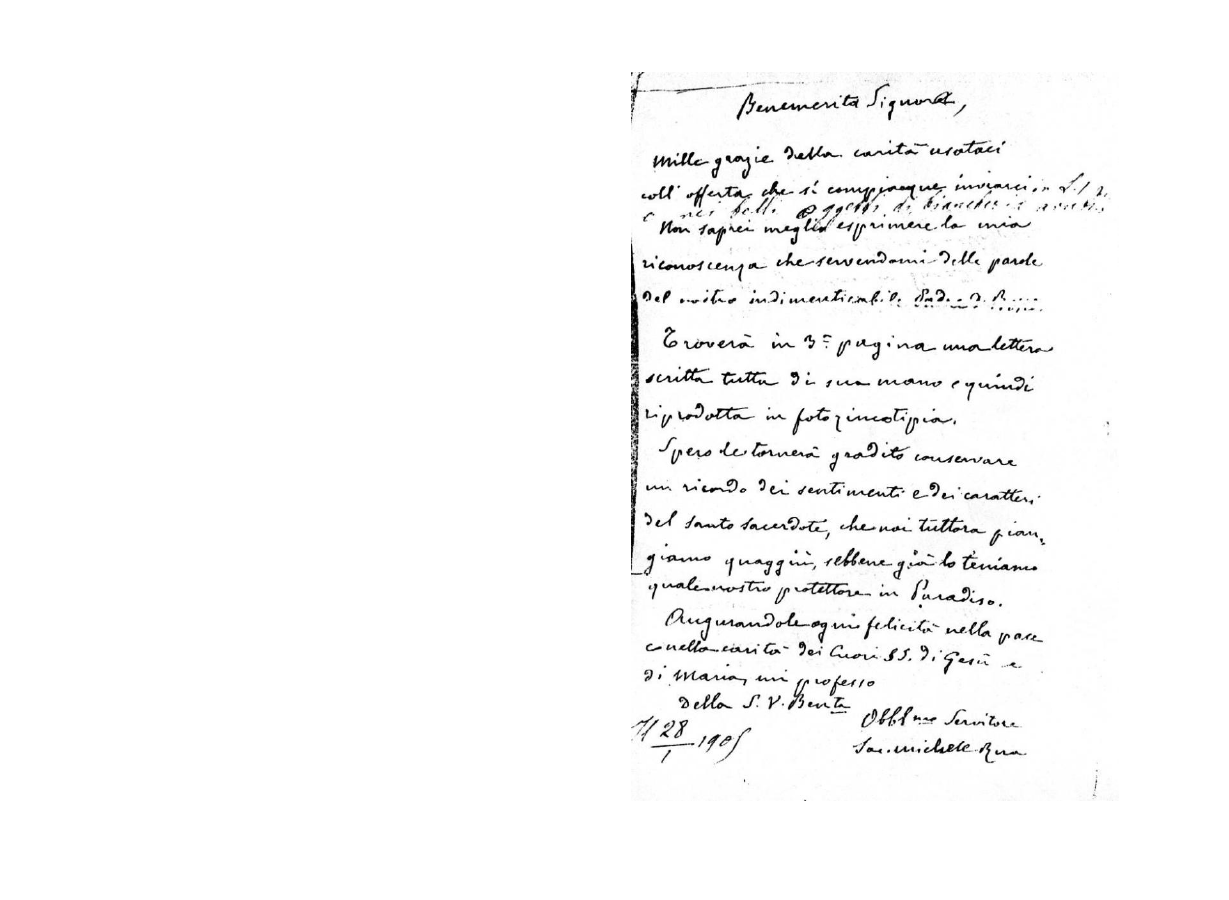 Benemerita Signora,
Mille grazie della carità usataci
coll' offerta che si compiacque inviarci in L.
e nei belli oggetti di biancheria
Non saprei meglio esprimere la mia
riconoscenza che servendomi delle parole
del nostro indimenticabile
Troverà in 3ª pagina una lettera
scritta tutta di sua mano e quindi
riprodotta in fotozincotipia.
Spero le tornerà gradito conservare
un ricordo dei sentimenti e dei caratteri
del santo sacerdote, che noi tuttora pian-
giamo quaggiù, sebbene già lo teniamo
quale nostro protettore in Paradiso.
Augurandole ogni felicità nella pace
e nella carità dei Cuori SS. di Gesù e
di Maria, mi professo
della S. V. Benta
Obbl mo Servitore
28/1 1905
Sac. Michele Rua